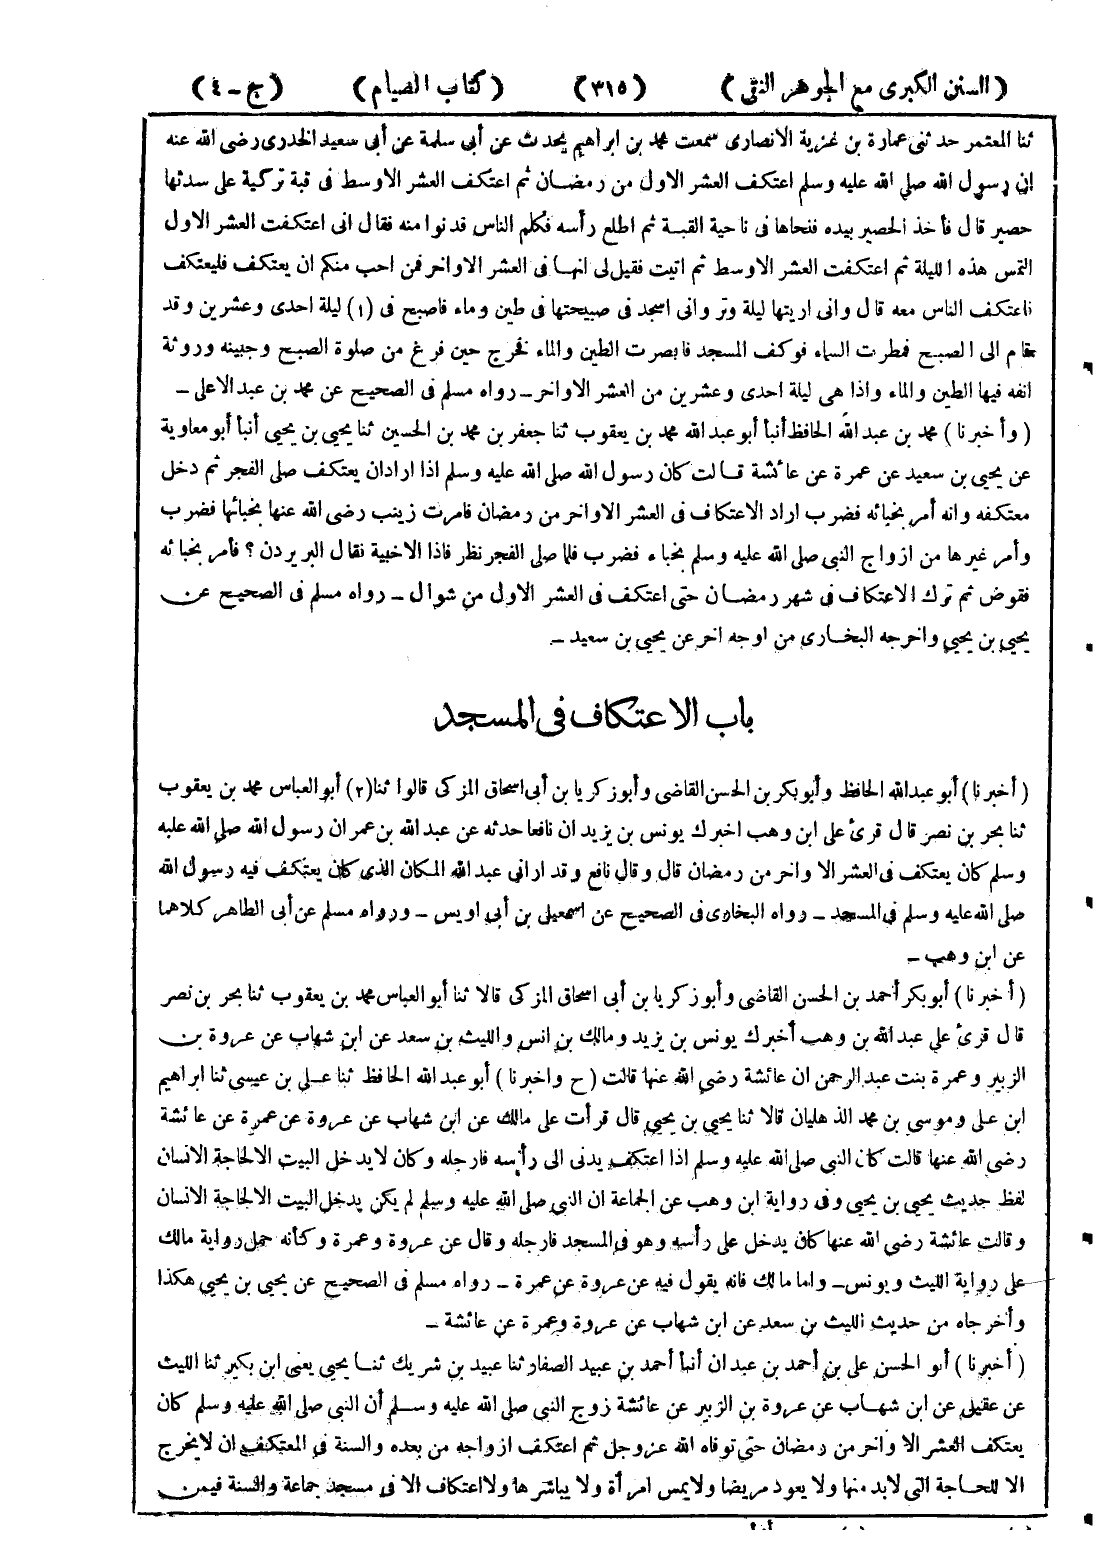 (السنن الكبرى مع الجوهر النقى) (٣١٥) (كتاب الصيام) (ج - ٤)
ثنا المعتمر حدثنى عمارة بن غزية الانصارى سمعت محمد بن ابراهيم يحدث عن أبى سلمة عن أبى سعيد الخدرى رضى الله عنه
ان رسول الله صلى الله عليه وسلم اعتكف العشر الاول من رمضان ثم اعتكف العشر الاوسط فى قبة تركية على سدتها
حصير قال فأخذ الحصير بيده فنحاها فى ناحية القبة ثم اطلع رأسه فكلم الناس فدنوا منه فقال انى اعتكفت العشر الاول
التمس هذه الليلة ثم اعتكفت العشر الاوسط ثم اتيت فقيل لى انها فى العشر الاواخر فمن احب منكم ان يعتكف فليعتكف
فاعتكف الناس معه قال وانى اريتها ليلة وتر وانى اسجد فى صبيحتها فى طين وماء فاصبح فى (١) ليلة احدى وعشرين وقد
قام الى الصبح فمطرت السماء فوكف المسجد فابصرت الطين والماء فخرج حين فرغ من صلوة الصبح وجبينه وروثة
انفه فيها الطين والماء واذا هى ليلة احدى وعشرين من العشر الاواخر - رواه مسلم فى الصحيح عن محمد بن عبد الاعلى -
(وأخبرنا) محمد بن عبد الله الحافظ أنبأ أبو عبد الله محمد بن يعقوب ثنا جعفر بن محمد بن الحسين ثنا يحيى بن يحيى أنبأ أبو معاوية
عن يحيى بن سعيد عن عمرة عن عائشة قالت كان رسول الله صلى الله عليه وسلم اذا ارادان يعتكف صلى الفجر ثم دخل
معتكفه وانه أمر بخبائه فضرب اراد الاعتكاف فى العشر الاواخر من رمضان فامرت زينب رضى الله عنها بخبائها فضرب
وأمر غيرها من ازواج النبى صلى الله عليه وسلم بخباء فضرب فلما صلى الفجر نظر فاذا الاخبية فقال البر يردن ؟ فأمر بخبائه
فقوض ثم ترك الاعتكاف فى شهر رمضان حتى اعتكف فى العشر الاول من شوال - رواه مسلم فى الصحيح عن
يحيى بن يحيى واخرجه البخارى من اوجه اخر عن يحيى بن سعيد -
باب الاعتكاف فى المسجد
(أخبرنا) أبو عبدالله الحافظ وأبو بكر بن الحسن القاضى وأبوزكريا بن أبى اسحاق المزكى قالوا ثنا (٢) أبو العباس محمد بن يعقوب
ثنا بحر بن نصر قال قرئ على ابن وهب اخبرك يونس بن يزيد ان نافعا حدثه عن عبد الله بن عمر ان رسول الله صلى الله عليه
وسلم كان يعتكف فى العشر الاواخر من رمضان قال وقال نافع وقد ارانى عبد الله المكان الذى كان يعتكف فيه رسول الله
صلى الله عليه وسلم فى المسجد - رواه البخارى فى الصحيح عن اسمعيل بن أبى اويس - ورواه مسلم عن أبى الطاهر كلاهما
عن ابن وهب -
(أخبرنا) أبو بكر أحمد بن الحسن القاضى وأبوزكريا بن أبى اسحاق المزكى قالا ثنا أبو العباس محمد بن يعقوب ثنا بحر بن نصر
قال قرئ على عبد الله بن وهب أخبرك يونس بن يزيد ومالك بن انس والليث بن سعد عن ابن شهاب عن عروة بن
الزبير وعمرة بنت عبد الرحمن ان عائشة رضى الله عنها قالت (ح واخبرنا) أبو عبد الله الحافظ ثنا على بن عيسى ثنا ابراهيم
ابن على وموسى بن محمد الذهليان قالا ثنا يحيى بن يحيى قال قرأت على مالك عن ابن شهاب عن عروة عن عمرة عن عائشة
رضى الله عنها قالت كان النبى صلى الله عليه وسلم اذا اعتكف يدنى الى رأسه فارجله وكان لايدخل البيت الالحاجة الانسان
لفظ حديث يحيى بن يحيى وفى رواية ابن وهب عن الجماعة ان النبى صلى الله عليه وسلم لم يكن يدخل البيت الالحاجة الانسان
وقالت عائشة رضى الله عنها كان يدخل على رأسه وهو فى المسجد فارجله وقال عن عروة وعمرة وكأنه حمل رواية مالك
على رواية الليث ويونس - واما مالك فانه يقول فيه عن عروة عن عمرة - رواه مسلم فى الصحيح عن يحيى بن يحيى هكذا
وأخرجاه من حديث الليث بن سعد عن ابن شهاب عن عروة وعمرة عن عائشة -
(أخبرنا) أبو الحسن على بن أحمد بن عبدان أنبأ أحمد بن عبيد الصفار ثنا عبيد بن شريك ثنا يحيى يعنى ابن بكير ثنا الليث
عن عقيل عن ابن شهاب عن عروة بن الزبير عن عائشة زوج النبى صلى الله عليه وسلم أن النبى صلى الله عليه وسلم كان
يعتكف العشر الاواخر من رمضان حتى توفاه الله عزوجل ثم اعتكف ازواجه من بعده والسنة فى المعتكف ان لايخرج
الا للحاجة التى لابد منها ولا يعود مريضا ولايمس امرأة ولا يباشرها ولااعتكاف الا فى مسجد جماعة والسنة فيمن